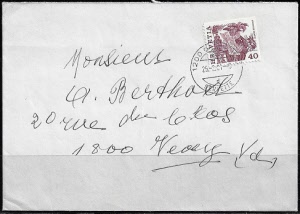 HELVETIA
40
Monsieur
A. Berthod
20 rue du
1800 Vevey Vd.